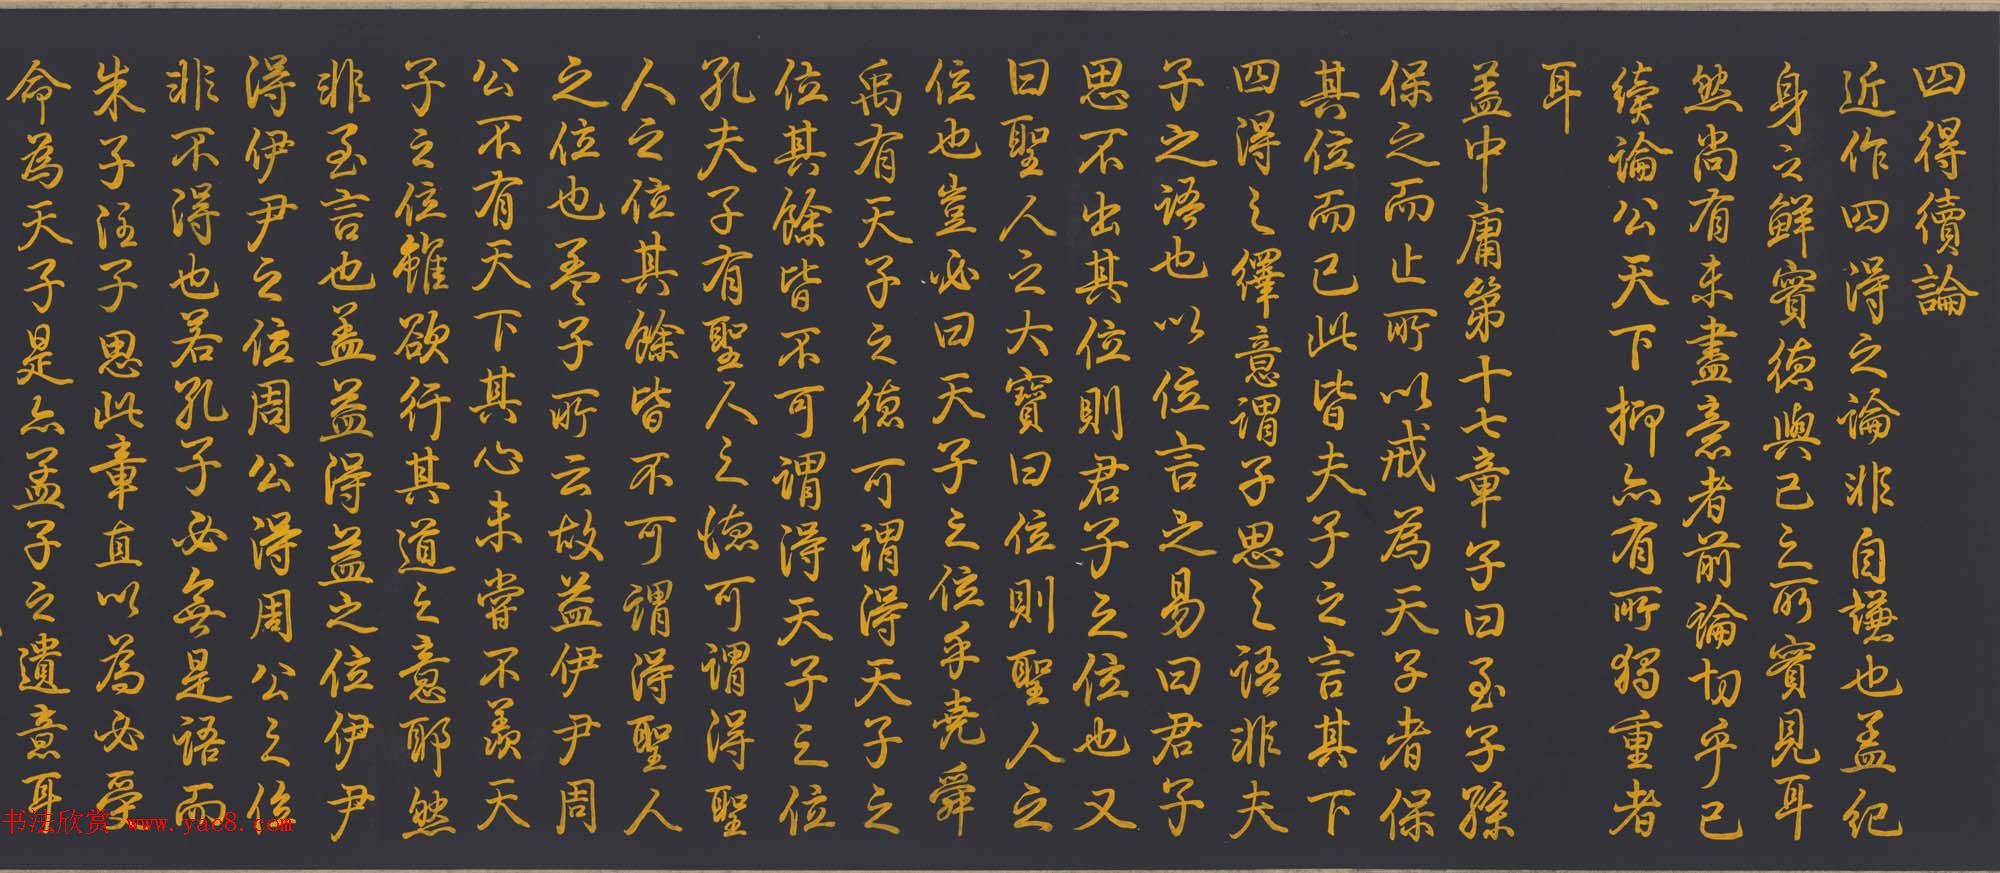 四得續論
近作四得之論非自謙也盖紀
身之鮮實德與已之所實見耳
然尚有未盡意者前論切乎已
續論公天下抑亦有所獨重者
耳
盖中庸第十七章子曰至子孫
保之而止所以戒為天子者保
其位而已此皆夫子之言其下
四得之繹意謂子思之語非夫
子之語也以位言之易曰君子
思不出其位則君子之位也又
曰聖人之大寶曰位則聖人之
位也豈必曰天子之位乎堯舜
禹有天子之德可謂得天子之
位其餘皆不可謂得天子之位
孔夫子有聖人之德可謂得聖
人之位其餘皆不可謂得聖人
之位也孟子所云故益伊尹周
公不有天下其心未嘗不羨天
子之位雖欲行其道之意耶然
非至言也盖益得益之位伊尹
得伊尹之位周公得周公之位
非不得也若孔子必無是語而
朱子注子思此章直以為必受
命為天子是亦孟子之遺意耳
书法欣赏 www.yac8.com